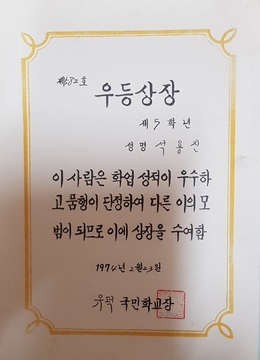 제682호
우등상장
제5학년
성명 석용진
이 사람은 학업 성적이 우수하
고 품행이 단정하여 다른 이의 모
범이 되므로 이에 상장을 수여함
1974년 2월 23일
국민학교장